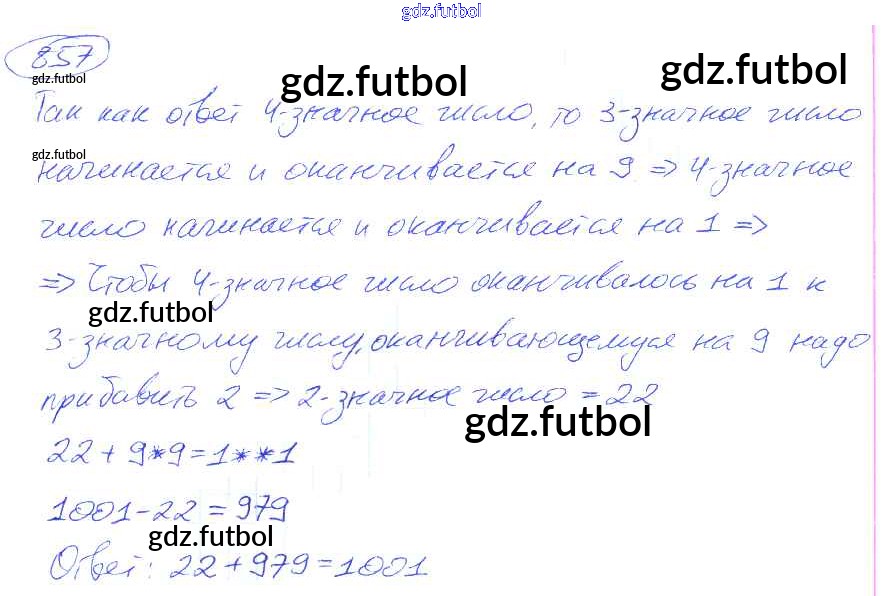 gdz.futbol
857
gdz.futbol
gdz.futbol
gdz.futbol
Так как ответ 4-значное число, то 3-значное число
gdz.futbol
начинается и оканчивается на 9 => 4-значное
число начинается и оканчивается на 1 =>
=> Чтобы 4-значное число оканчивалось на 1 к
gdz.futbol
3-значному числу, оканчивающемуся на 9 надо
прибавить 2 => 2-значное число = 22
gdz.futbol
22 + 9*9 = 1**1
1001 - 22 = 979
gdz.futbol
Ответ: 22 + 979 = 1001